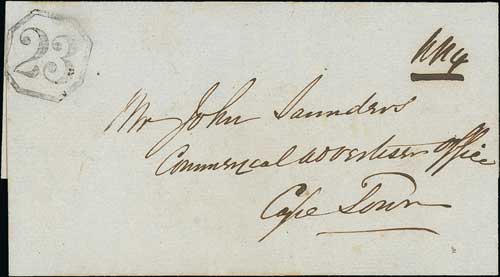 23
Mr John Saunders
Commercial Advertiser Office
Cape Town